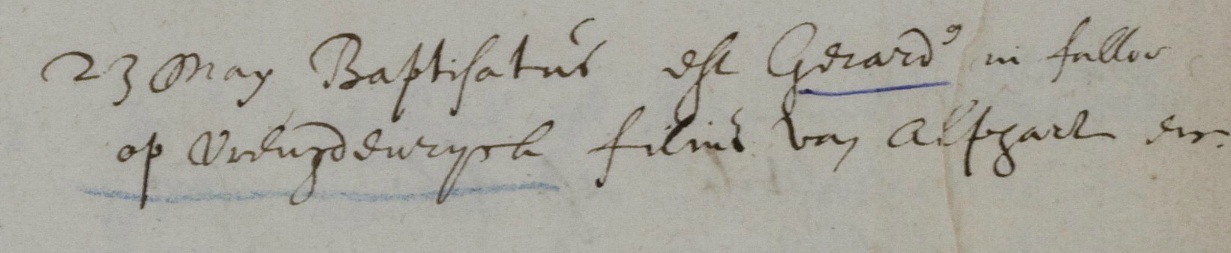 23 May Baptisatus est Gerard9 in fallor
op Vreugdenrijck filius van Alphart